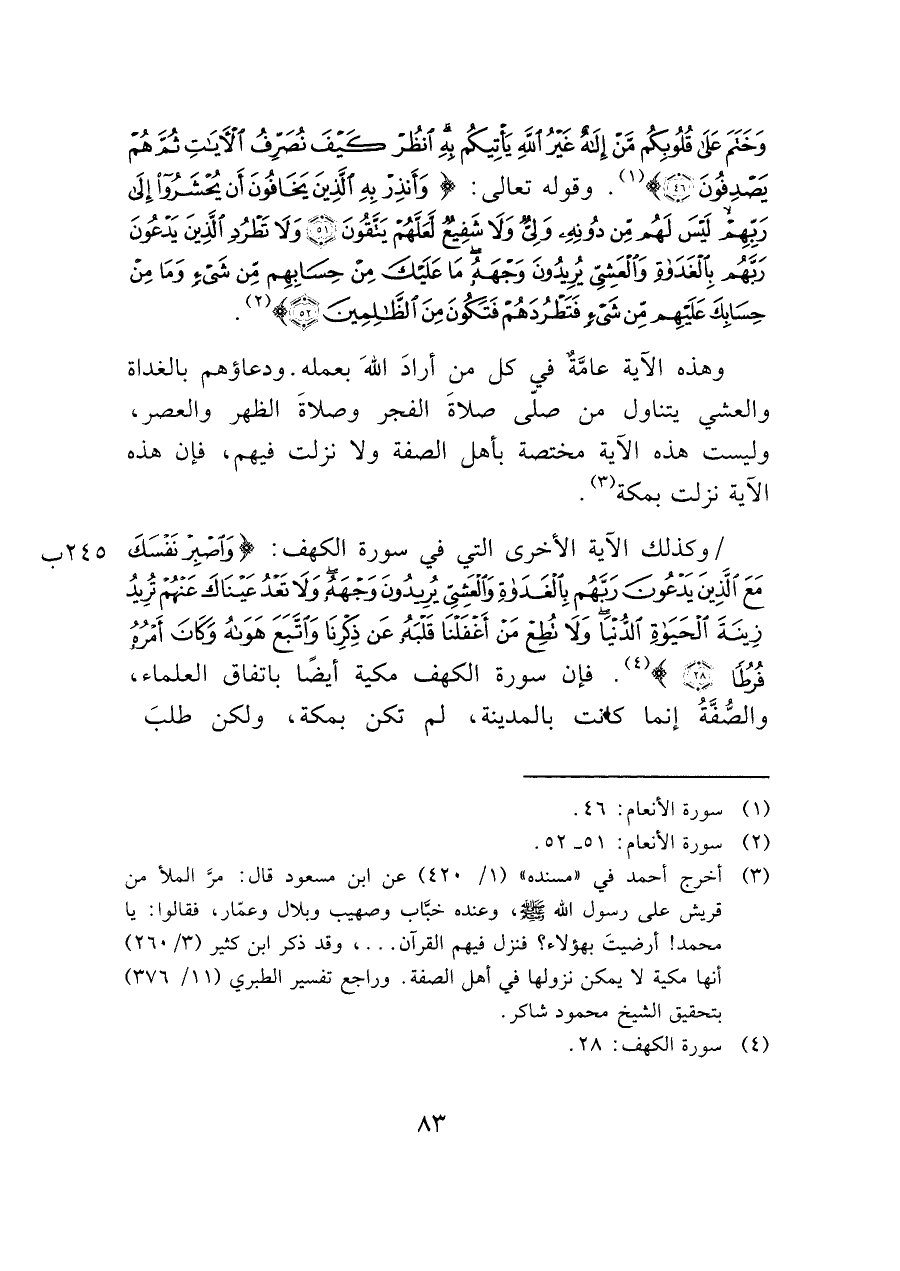 وَخَتَمَ عَلَىٰ قُلُوبِكُم مَّنْ إِلَٰهٌ غَيْرُ اللَّهِ يَأْتِيكُم بِهِ ۗ انظُرْ كَيْفَ نُصَرِّفُ الْآيَاتِ ثُمَّ هُمْ
يَصْدِفُونَ ٤٦﴾(١). وقوله تعالى: ﴿وَأَنذِرْ بِهِ الَّذِينَ يَخَافُونَ أَن يُحْشَرُوٓا إِلَىٰ
رَبِّهِمْ ۙ لَيْسَ لَهُم مِّن دُونِهِۦ وَلِيٌّ وَلَا شَفِيعٌ لَّعَلَّهُمْ يَتَّقُونَ ٥١ وَلَا تَطْرُدِ الَّذِينَ يَدْعُونَ
رَبَّهُم بِالْغَدَوٰةِ وَالْعَشِيِّ يُرِيدُونَ وَجْهَهُۥ ۖ مَا عَلَيْكَ مِنْ حِسَابِهِم مِّن شَيْءٍ وَمَا مِنْ
حِسَابِكَ عَلَيْهِم مِّن شَيْءٍ فَتَطْرُدَهُمْ فَتَكُونَ مِنَ الظَّٰلِمِينَ ٥٢﴾(٢).
وهذه الآية عامَّةٌ في كل من أرادَ اللهَ بعمله. ودعاؤهم بالغداة
والعشي يتناول من صلّى صلاةَ الفجر وصلاةَ الظهر والعصر،
وليست هذه الآية مختصة بأهل الصفة ولا نزلت فيهم، فإن هذه
الآية نزلت بمكة(٣).
/ وكذلك الآية الأخرى التي في سورة الكهف: ﴿وَاصْبِرْ نَفْسَكَ ٢٤٥ب
مَعَ الَّذِينَ يَدْعُونَ رَبَّهُم بِالْغَدَوٰةِ وَالْعَشِيِّ يُرِيدُونَ وَجْهَهُۥ ۖ وَلَا تَعْدُ عَيْنَاكَ عَنْهُمْ تُرِيدُ
زِينَةَ الْحَيَوٰةِ الدُّنْيَا ۖ وَلَا تُطِعْ مَنْ أَغْفَلْنَا قَلْبَهُۥ عَن ذِكْرِنَا وَاتَّبَعَ هَوَىٰهُ وَكَانَ أَمْرُهُۥ
فُرُطًا ٢٨﴾(٤). فإن سورة الكهف مكية أيضًا باتفاق العلماء،
والصُّفَّةُ إنما كانت بالمدينة، لم تكن بمكة، ولكن طلبَ
(١) سورة الأنعام: ٤٦.
(٢) سورة الأنعام: ٥١ـ ٥٢.
(٣) أخرج أحمد في «مسنده» (١/ ٤٢٠) عن ابن مسعود قال: مرَّ الملأ من
قريش على رسول الله ﷺ، وعنده خبَّاب وصهيب وبلال وعمّار، فقالوا: يا
محمد! أرضيتَ بهؤلاء؟ فنزل فيهم القرآن...، وقد ذكر ابن كثير (٣/ ٢٦٠)
أنها مكية لا يمكن نزولها في أهل الصفة. وراجع تفسير الطبري (١١/ ٣٧٦)
بتحقيق الشيخ محمود شاكر.
(٤) سورة الكهف: ٢٨.
٨٣